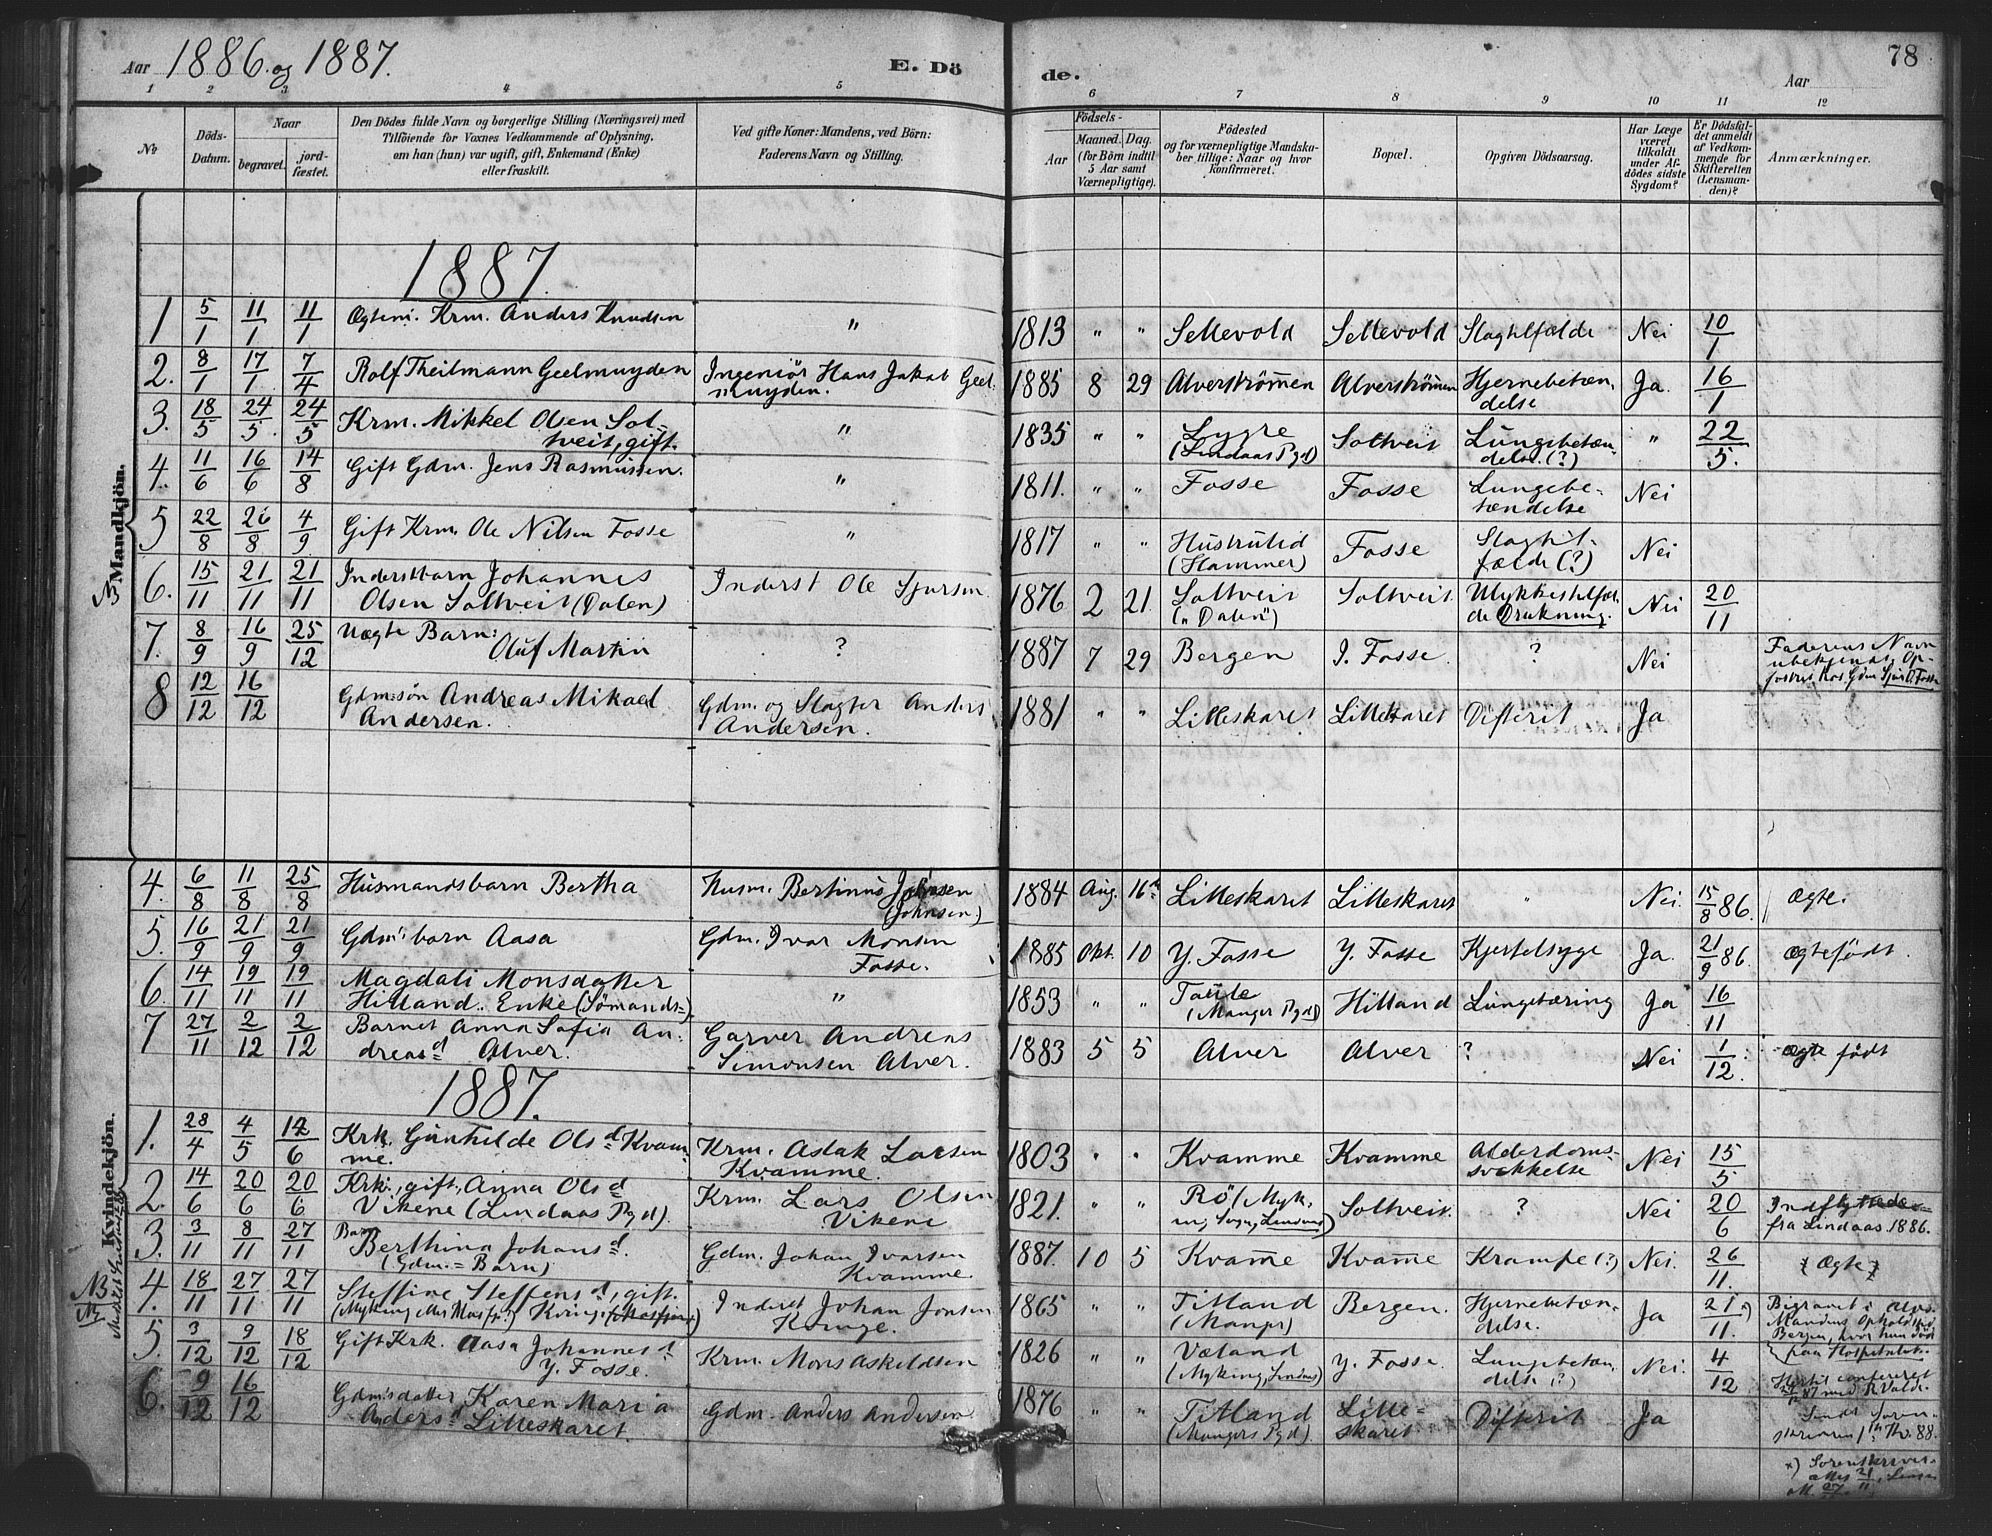 Aar 1886 og 1887. E. Dö de. Aar 78
1 2 3 4 5 6 7 8 9 10 11 12
No. Döds-Datum. Naar begravet. jordfæstet. Den Dödes fulde Navn og borgerlige Stilling (Næringsvei) med Tilföiende for Voxnes Vedkommende af Oplysning, om han (hun) var ugift, gift, Enkemand (Enke) eller fraskilt. Ved gifte Koner: Mandens, ved Börn: Faderens Navn og Stilling. Födsels- Aar Maaned. Dag. (for Börn indtil 5 Aar samt Værnepligtige). Födested og for værnepligtige Mandskaber tillige: Naar og hvor konfirmeret. Bopæl. Opgiven Dödsaarsag. Har Læge været tilkaldt under Afdödes sidste Sygdom? Er Dödsfaldet anmeldt af Vedkommende for Skifteretten (Lensmanden)? Anmærkninger.
Mandkjön.
1887.
1 5/1 11/1 11/1 Ægtem. Krm. Anders Knudsen " 1813 " " Sellevold Sellevold Slagtilfælde Nei 10/1
2. 8/1 17/1 7/4 Rolf Theilmann Geelmuyden Ingeniör Hans Jakob Geelmuyden. 1885 8 29 Alverströmmen Alverströmmen Hjernebetændelse Ja. 16/1
3. 18/5 24/5. 24/5 Krm. Mikkel Olsen Soltveit, gift. " 1835 " " Lygre (Lindaas Pgd) Soltveit Lungebetændelse.(?) " 22/5.
4. 11/6 16/6 14/8 Gift Gdm. Jens Rasmussen. " 1811. " " Fosse Fosse Lungebetændelse Nei
5 22/8 26/8 4/9 Gift Krm. Ole Nilsen Fosse " 1817 " " Hustrulid (Hammer) Fosse Slagtilfælde (?) Nei
6. 15/11 21/11 21/11 Inderstbarn Johannes Olsen Soltveit (Dalen) Inderst Ole Sjursen. 1876 2 21. Soltveit („Dalen") Soltveit. Ulykkestilfælde Drukning. Nei 20/11
7. 8/9 16/9 25/12 Uægte Barn: Oluf Martin ? 1887 7 29 Bergen I. Fosse. ? Nei Faderens Navn ubekjendt, Opfostret hos Gdm Sjur O. Fosse
8 12/12 16/12 Gdm:søn Andreas Mikael Andersen. Gdm. og Slagter Anders Andersen. 1881 " " Lilleskaret Lilleskaret Difterit Ja
Kvindekjön.
4. 6/8 11/8 25/8 Husmandsbarn Bertha Husm. Bertinus Johnsen (Johnsen) 1884 Aug. 16de Lilleskaret Lilleskaret " Nei. 15/8 86. Ægte.
5. 16/9 21/9 21/9 Gdm's barn Aasa Gdm. Ivar Monsen Fosse. 1885 Okt. 10 Y. Fosse Y. Fosse Kjertelsyge Ja. 21/9 86. ægtefödt.
6. 14/11 19/11 19/11 Magdali Monsdatter Hilland. Enke (Sömands=) " 1853 " " Toule (Manger Pgd) Hilland Lungetæring Ja 16/11
7 27/11 2/12 2/12 Barnet Anna Sofia Andreasd Alver. Garver Andreas Simonsen Alver. 1883 5 5 Alver Alver ? Nei 1/12. ægte födt
1887.
1. 28/4 4/5 12/6 Krk. Gunhilde Olsd Kvamme. Krm. Aslak Larsen Kvamme. 1803 " " Kvamme Kvamme Alderdomssvækkelse Nei 15/5
2. 14/6 20/6 20/6 Krk:, gift, Anna Olsd Vikene (Lindaas Pgd). Krm. Lars Olsen Vikene 1821. " " Rö (Myking Sogn, Lindaas) Soltveit. ? Nei 20/6 Indflyttede fra Lindaas 1886.
3. 3/11 8/11 27/11 Barn Berthina Johansd. (Gdm.= Barn) Gdm. Johan Ivarsen Kvamme. 1887. 10 5 Kvamme Kvamme Krampe (?) Nei. 26/11. Ægte
NB 4. 18/11 27/11 27/11 Steffine Steffensd, gift. Kringe Inderst Johan Jonsen Kringe. 1865 " " Titland (Manger) Bergen. Hjernebetændelse. Ja 21/11. *) Begravet i Alver. Mandens Ophold ved Bergen, hvor hun döde paa Hospitalet.
5. 3/12 9/12 18/12 Gift Krk. Aasa Johannesd Y. Fosse. Krm. Mons Askildsen 1826 " " Væland (Myking, Lindaas) Y. Fosse. Lungebetændelse (?) Nei. 4/12
6. 9/12 16/12 Gdm's datter Karen Maria Andersd Lilleskaret. Gdm. Anders Andersen. 1876 " " Titland (Mangers Pgd). Lilleskaret Difterit Ja